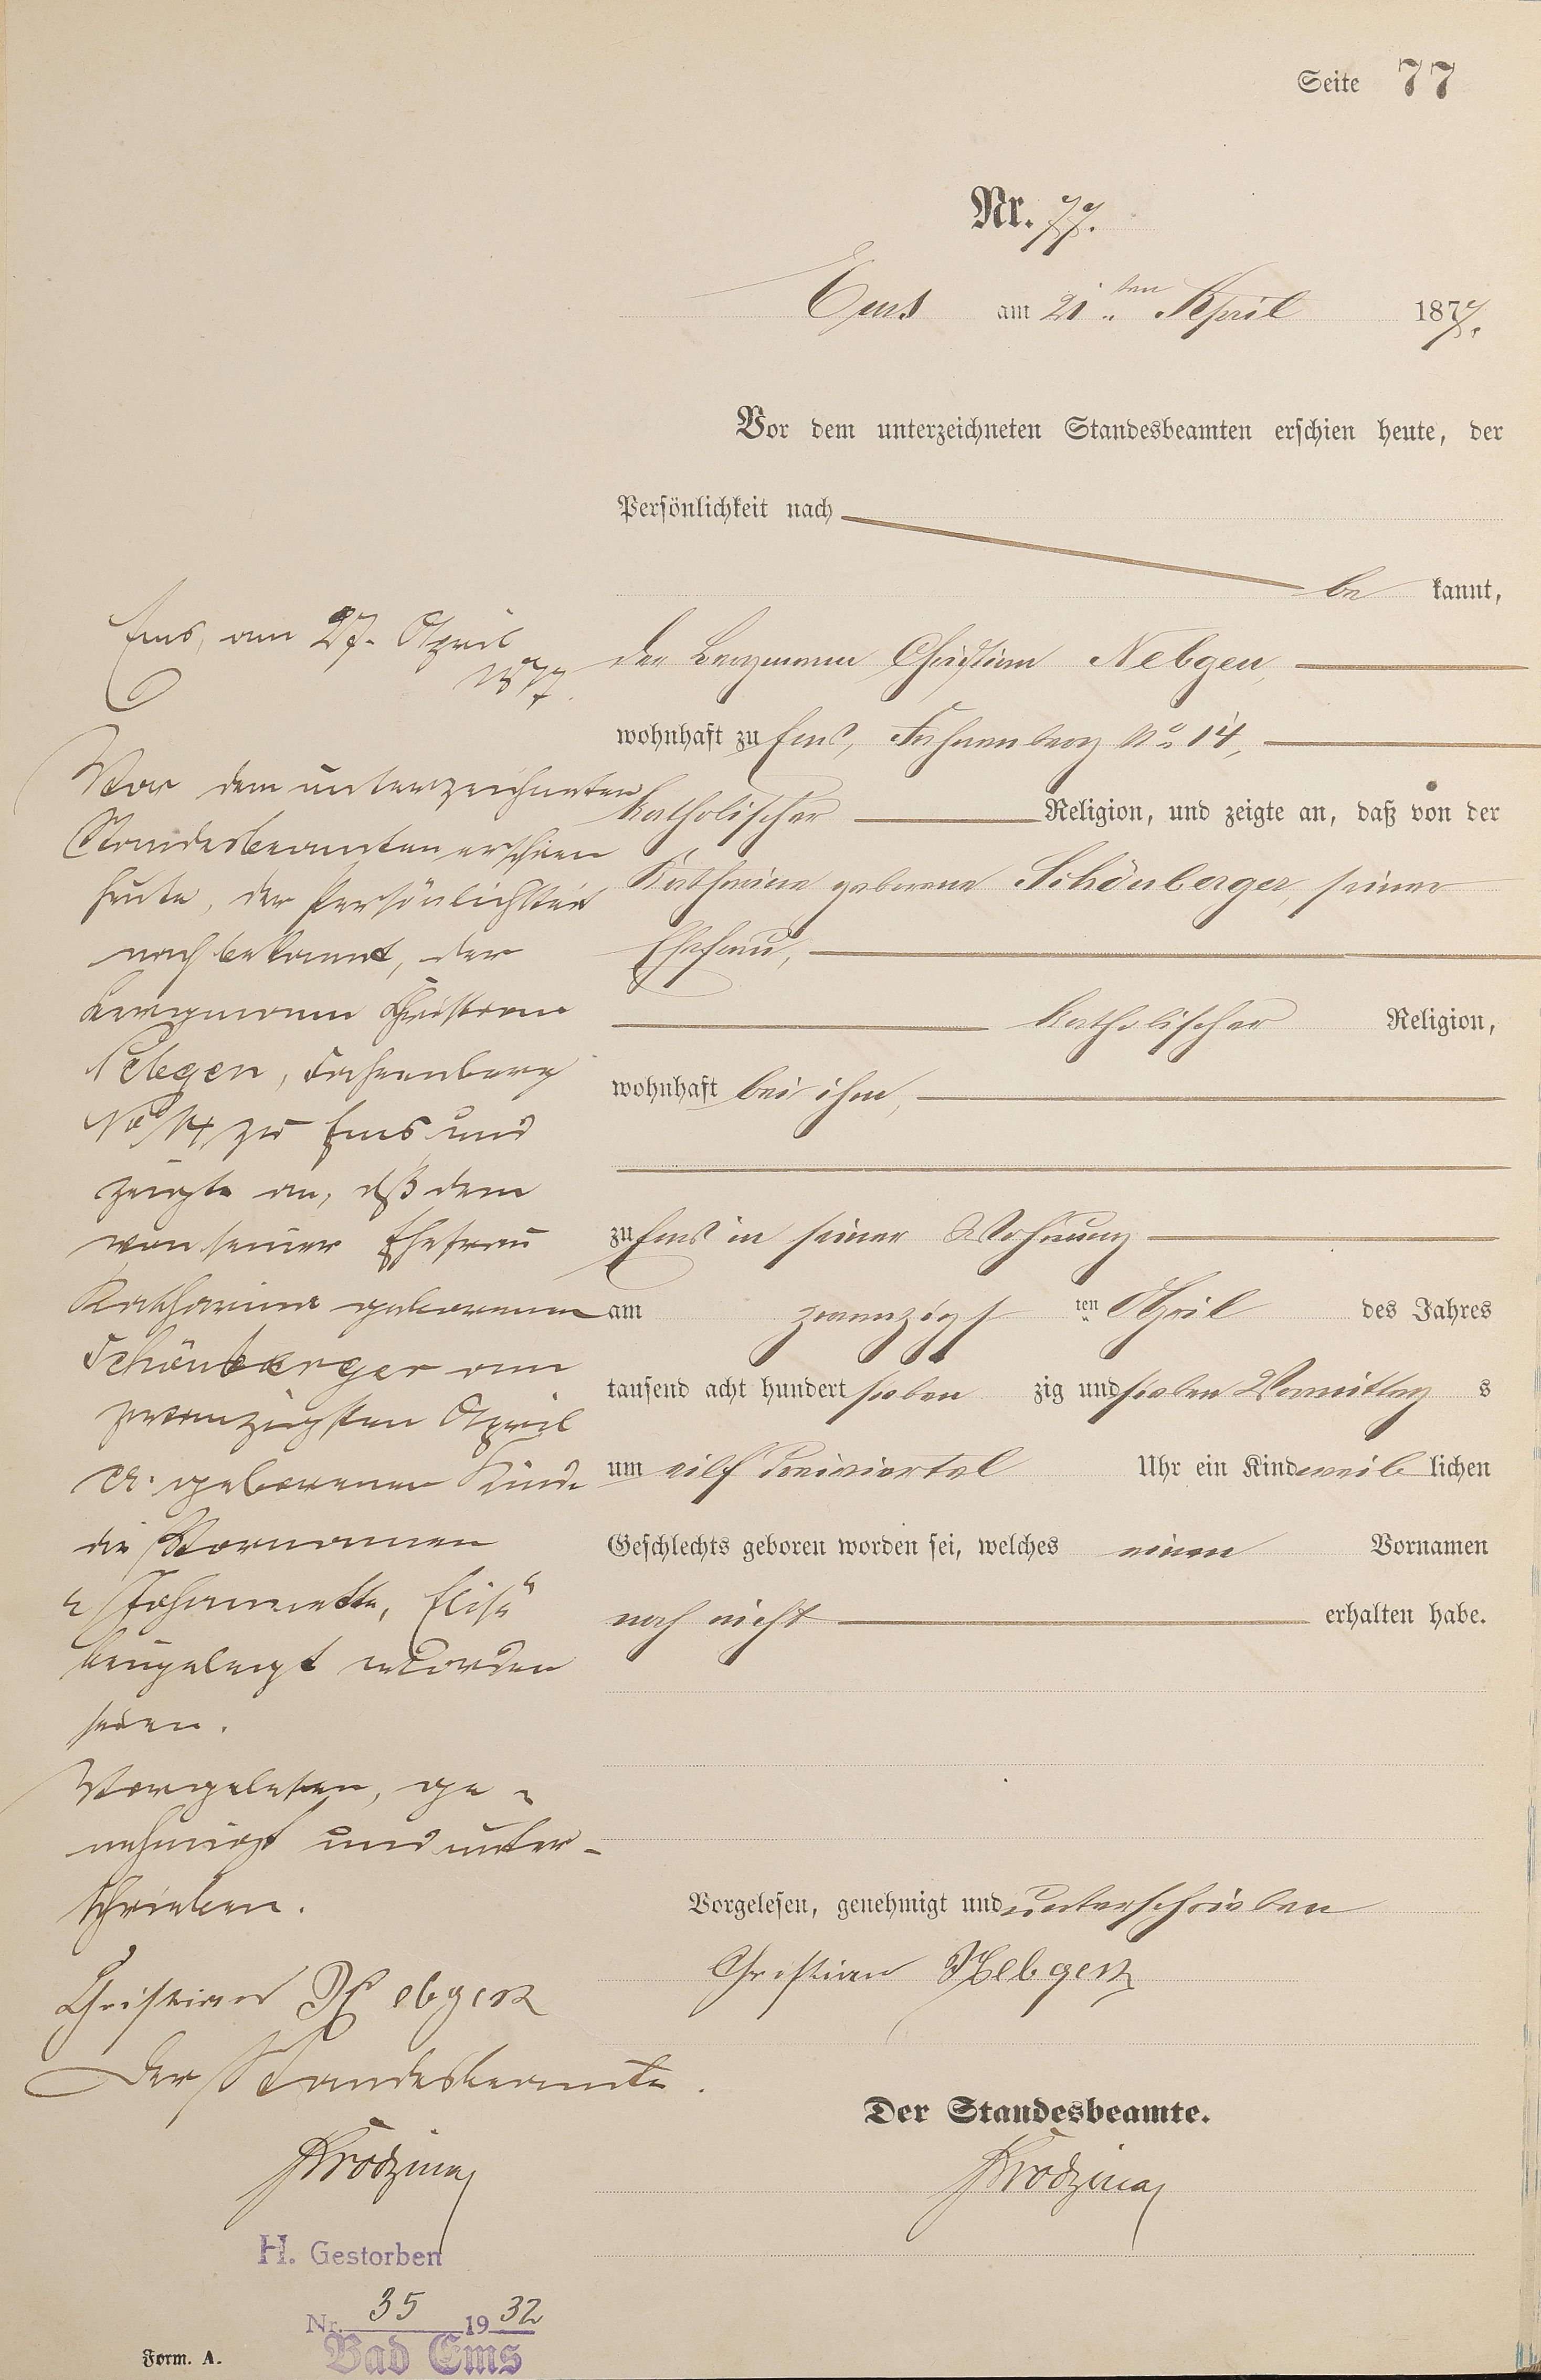 Seite 77
Nr. 77.
Ems am 21ten April 1877.
Vor dem unterzeichneten Standesbeamten erschien heute, der
Persönlichkeit nach
be kannt,
der Bergmann Christian Nebgen,
wohnhaft zu Ems, Fahnenberg No 14,
katholischer Religion, und zeigte an, daß von der
Katharina geborene Schönberger, seiner
Ehefrau,
katholischer Religion,
wohnhaft bei ihm,
zu Ems in seiner Wohnung
am zwanzigsten April des Jahres
tausend acht hundert sieben zig und sieben Vormittag s
um eilf dreiviertel Uhr ein Kind weib lichen
Geschlechts geboren worden sei, welches einen Vornamen
noch nicht erhalten habe.
Vorgelesen, genehmigt und unterschrieben
Christian Nebgen
Der Standesbeamte.
Ems, am 27. April
1877.
Vor dem unterzeichneten
Standesbeamten erschien
heute, der Persönlichkeit
nach bekannt, der
Bergmann Christian
Nebgen, Fahnenberg
No 14, zu Ems und
zeigte an, daß dem
von seiner Ehefrau
Katharina geborenen
Schönberger am
zwanzigsten April
cr. geborenen Kinde
die Vornamen
"Johannette, Elise"
beigelegt worden
seien.
Vorgelesen, ge-
nehmigt und unter-
schrieben.
Christian Nebgen
Der Standesbeamte.
H. Gestorben
Nr. 35 1932
Bad Ems
Form. A.